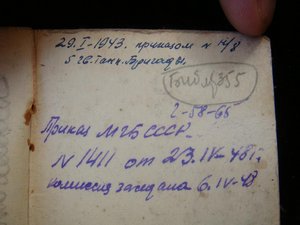 29.I-1943. приказом N 14/8
5 гв. Танк. Бригады.
355
2-58-66
Приказ МГБ СССР.
N 1411 от 23.IV-48г.
комиссия заседала 6.IV-48